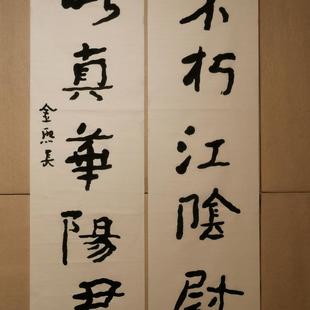 不朽江陰尉
真華陽
金熙長